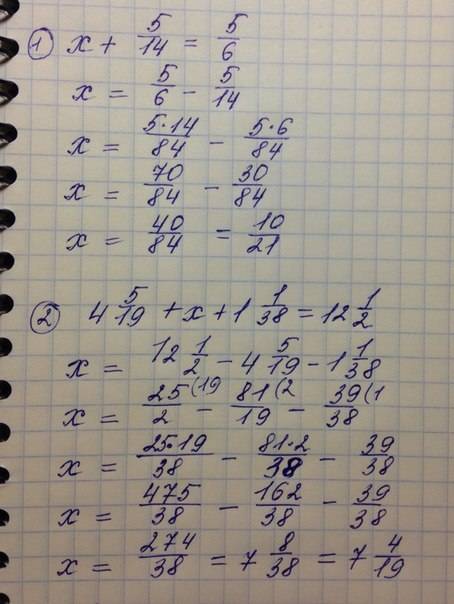 ① x + 5/14 = 5/6
x = 5/6 - 5/14
x = 5·14/84 - 5·6/84
x = 70/84 - 30/84
x = 40/84 = 10/21
② 4 5/19 + x + 1 1/38 = 12 1/2
x = 12 1/2 - 4 5/19 - 1 1/38
x = 25/2 (19 - 81/19 (2 - 39/38 (1
x = 25·19/38 - 81·2/38 - 39/38
x = 475/38 - 162/38 - 39/38
x = 274/38 = 7 8/38 = 7 4/19